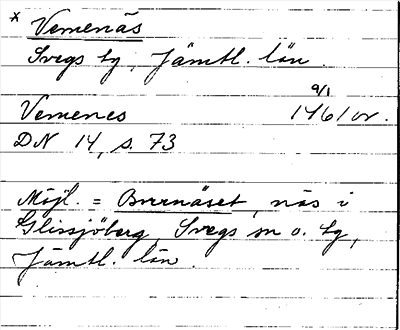 * Vemenäs
Svegs tg, Jämtl. län.
Vemenes 9/1 1461 or.
DN 14, s. 73
Möjl. = Brernäset, näs i
Glissjöberg, Svegs sn o. tg,
Jämtl. län.